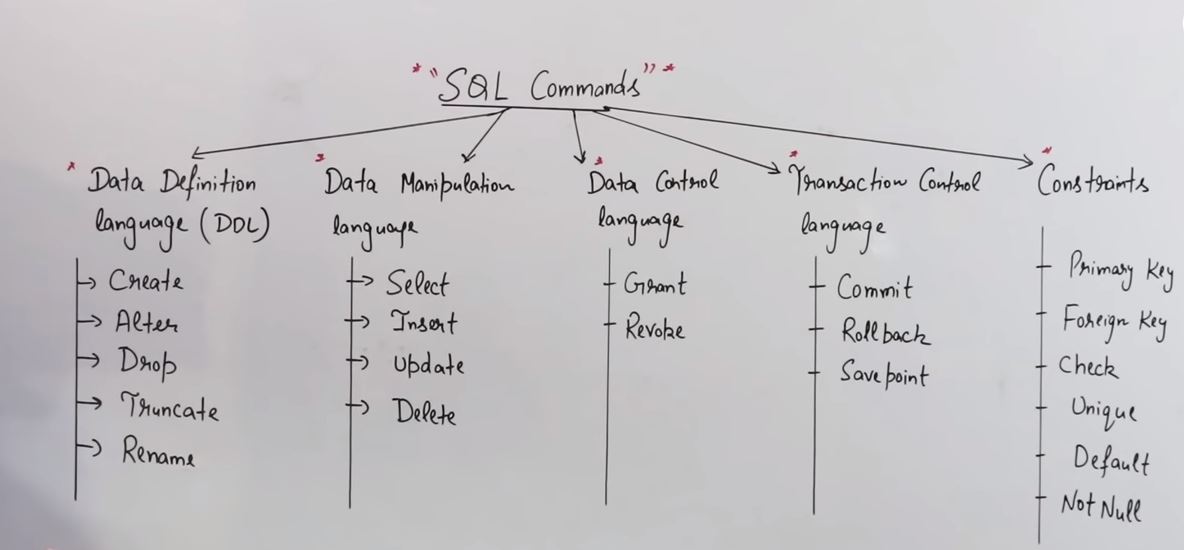 * "SQL Commands" *
* Data Definition
language (DDL)
Create
Alter
Drop
Truncate
Rename
* Data Manipulation
language
Select
Insert
Update
Delete
* Data Control
language
Grant
Revoke
* Transaction Control
language
Commit
Rollback
Savepoint
* Constraints
Primary Key
Foreign Key
Check
Unique
Default
Not Null